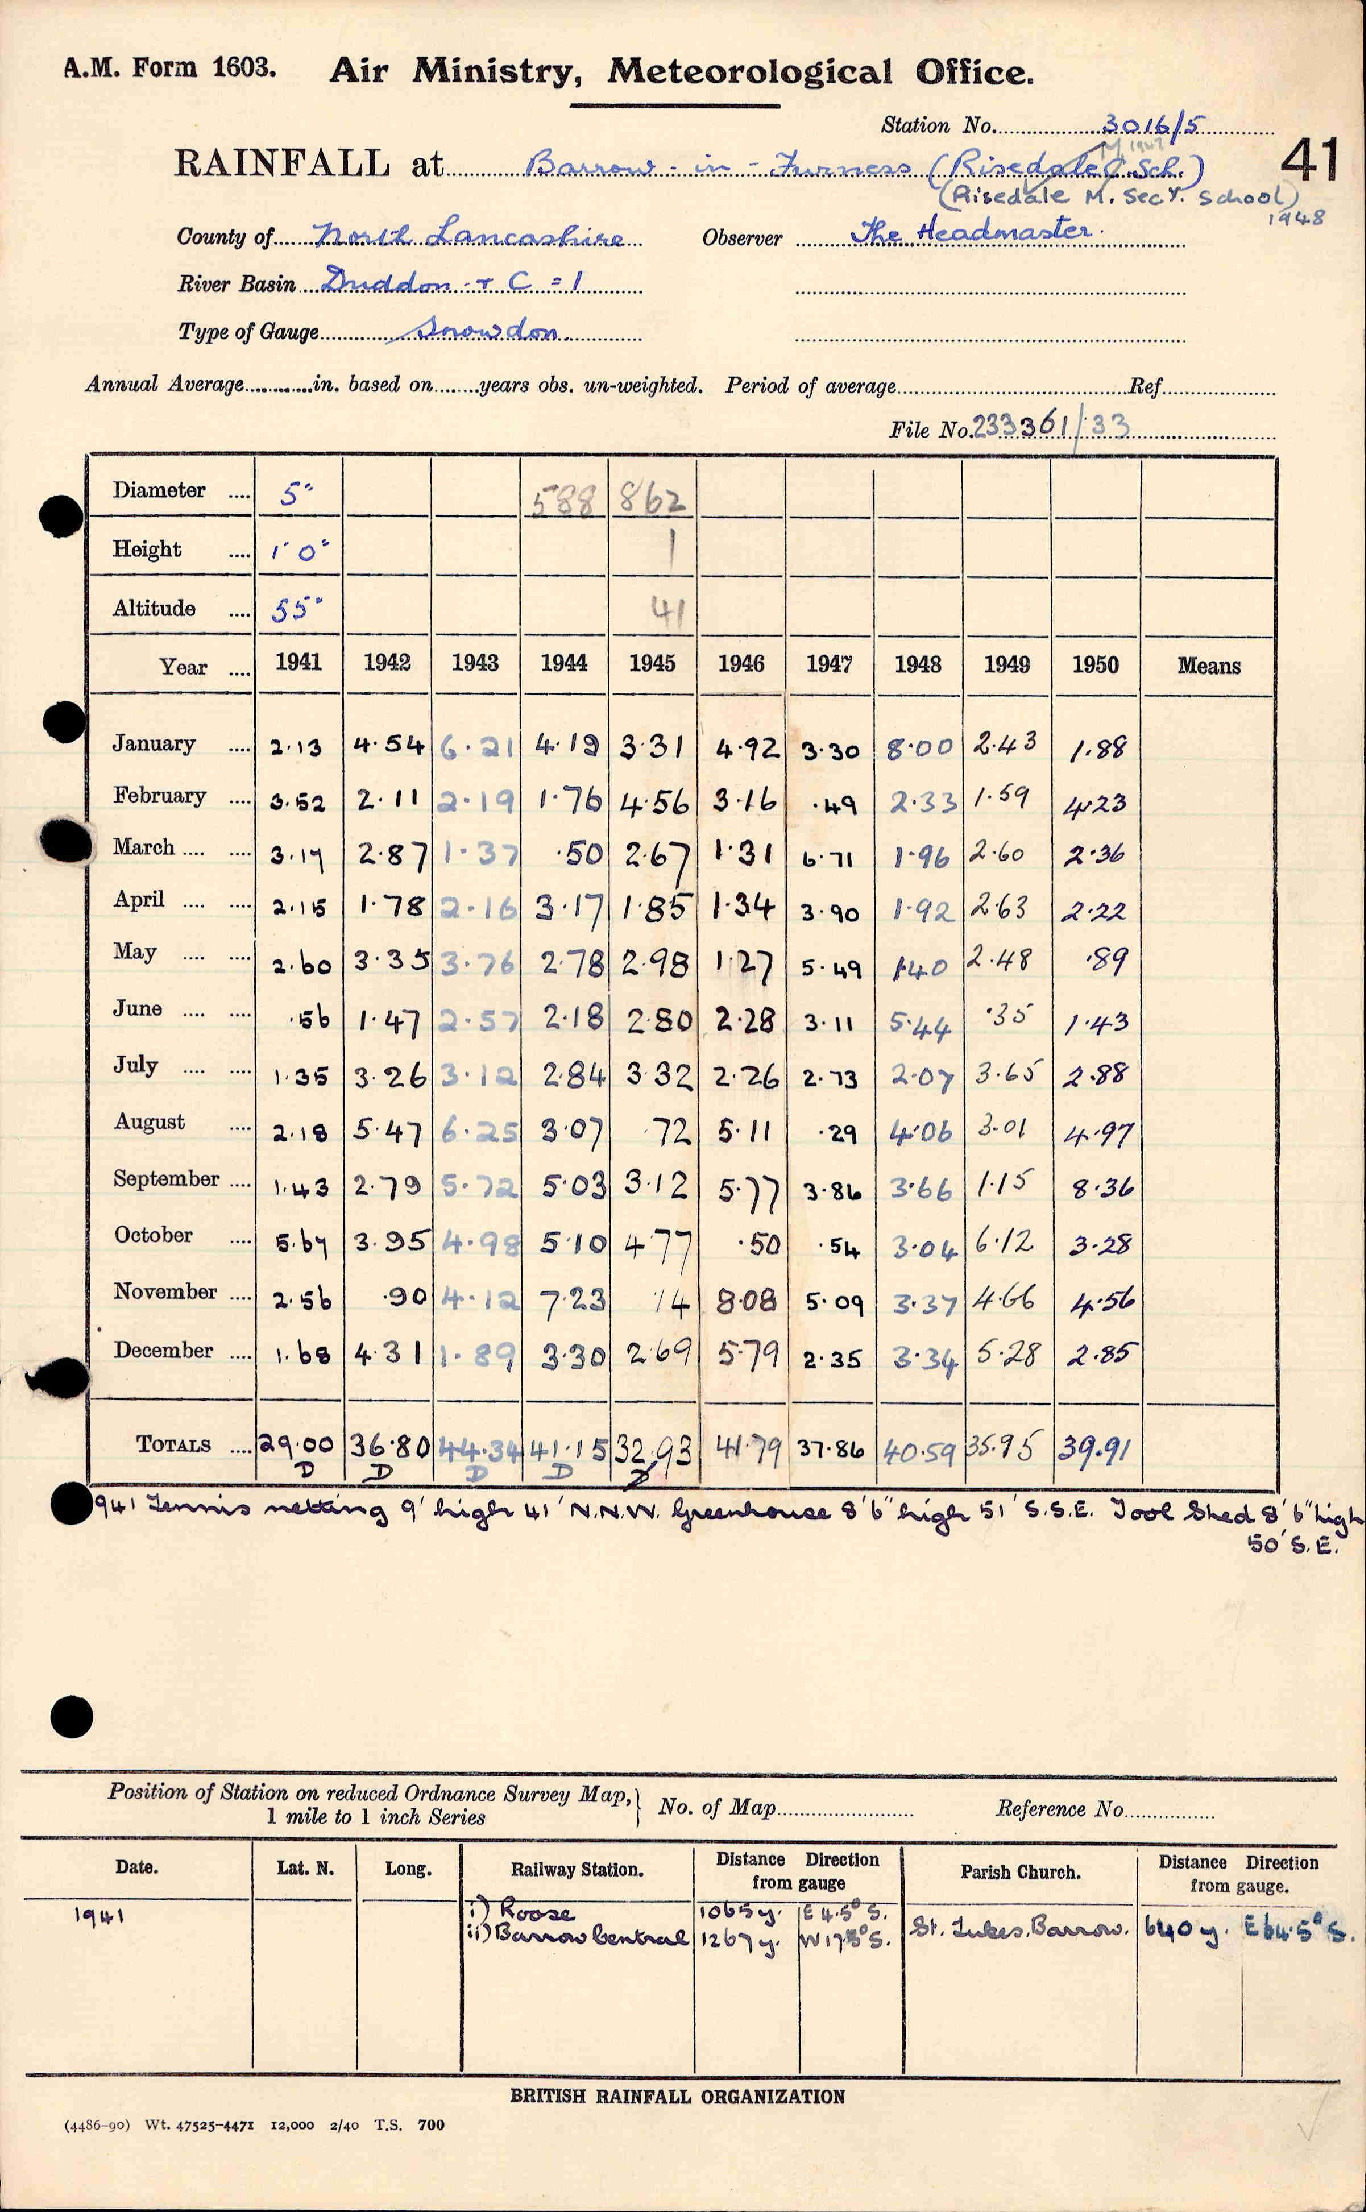 A.M. Form 1603. Air Ministry, Meteorological Office.
Station No. 3016/5
M 1947
RAINFALL at Barrow-in-Furness (Risedale C. Sch.) 41
(Risedale M. Secy. School)
1948
County of North Lancashire Observer The Headmaster.
River Basin Duddon + C = 1
Type of Gauge Snowdon.
Annual Average in. based on years obs. un-weighted. Period of average Ref
File No. 233361/33
Diameter .... 5" 588 862
Height .... 1' 0" 1
Altitude .... 55' 41
Year .... 1941 1942 1943 1944 1945 1946 1947 1948 1949 1950 Means
January .... 2.13 4.54 6.21 4.19 3.31 4.92 3.30 8.00 2.43 1.88
February .... 3.52 2.11 2.19 1.76 4.56 3.16 .49 2.33 1.59 4.23
March .... .... 3.17 2.87 1.37 .50 2.67 1.31 6.71 1.96 2.60 2.36
April .... .... 2.15 1.78 2.16 3.17 1.85 1.34 3.90 1.92 2.63 2.22
May .... .... 2.60 3.35 3.76 2.78 2.98 1.27 5.49 1.40 2.48 .89
June .... .... .56 1.47 2.57 2.18 2.80 2.28 3.11 5.44 .35 1.43
July .... .... 1.35 3.26 3.12 2.84 3.32 2.26 2.73 2.07 3.65 2.88
August .... 2.18 5.47 6.25 3.07 .72 5.11 .29 4.06 3.01 4.97
September .... 1.43 2.79 5.72 5.03 3.12 5.77 3.86 3.66 1.15 8.36
October .... 5.67 3.95 4.98 5.10 4.77 .50 .54 3.04 6.12 3.28
November .... 2.56 .90 4.12 7.23 .14 8.08 5.09 3.37 4.66 4.56
December .... 1.68 4.31 1.89 3.30 2.69 5.79 2.35 3.34 5.28 2.85
TOTALS .... 29.00 36.80 44.34 41.15 32.93 41.79 37.86 40.59 35.95 39.91
D D D D D
941 Tennis netting 9' high 41' N.N.W. Greenhouse 8'6" high 51' S.S.E. Tool Shed 8'6" high
50' S.E.
Position of Station on reduced Ordnance Survey Map, 1 mile to 1 inch Series } No. of Map Reference No.
Date. Lat. N. Long. Railway Station. Distance Direction from gauge Parish Church. Distance Direction from gauge.
1941 i) Roose 1065 y. E 4.5° S. St. Lukes, Barrow. 640 y. E 64.5° S.
ii) Barrow Central 1267 y. W 17.5° S.
BRITISH RAINFALL ORGANIZATION
(4486-90) Wt. 47525-4471 12,000 2/40 T.S. 700